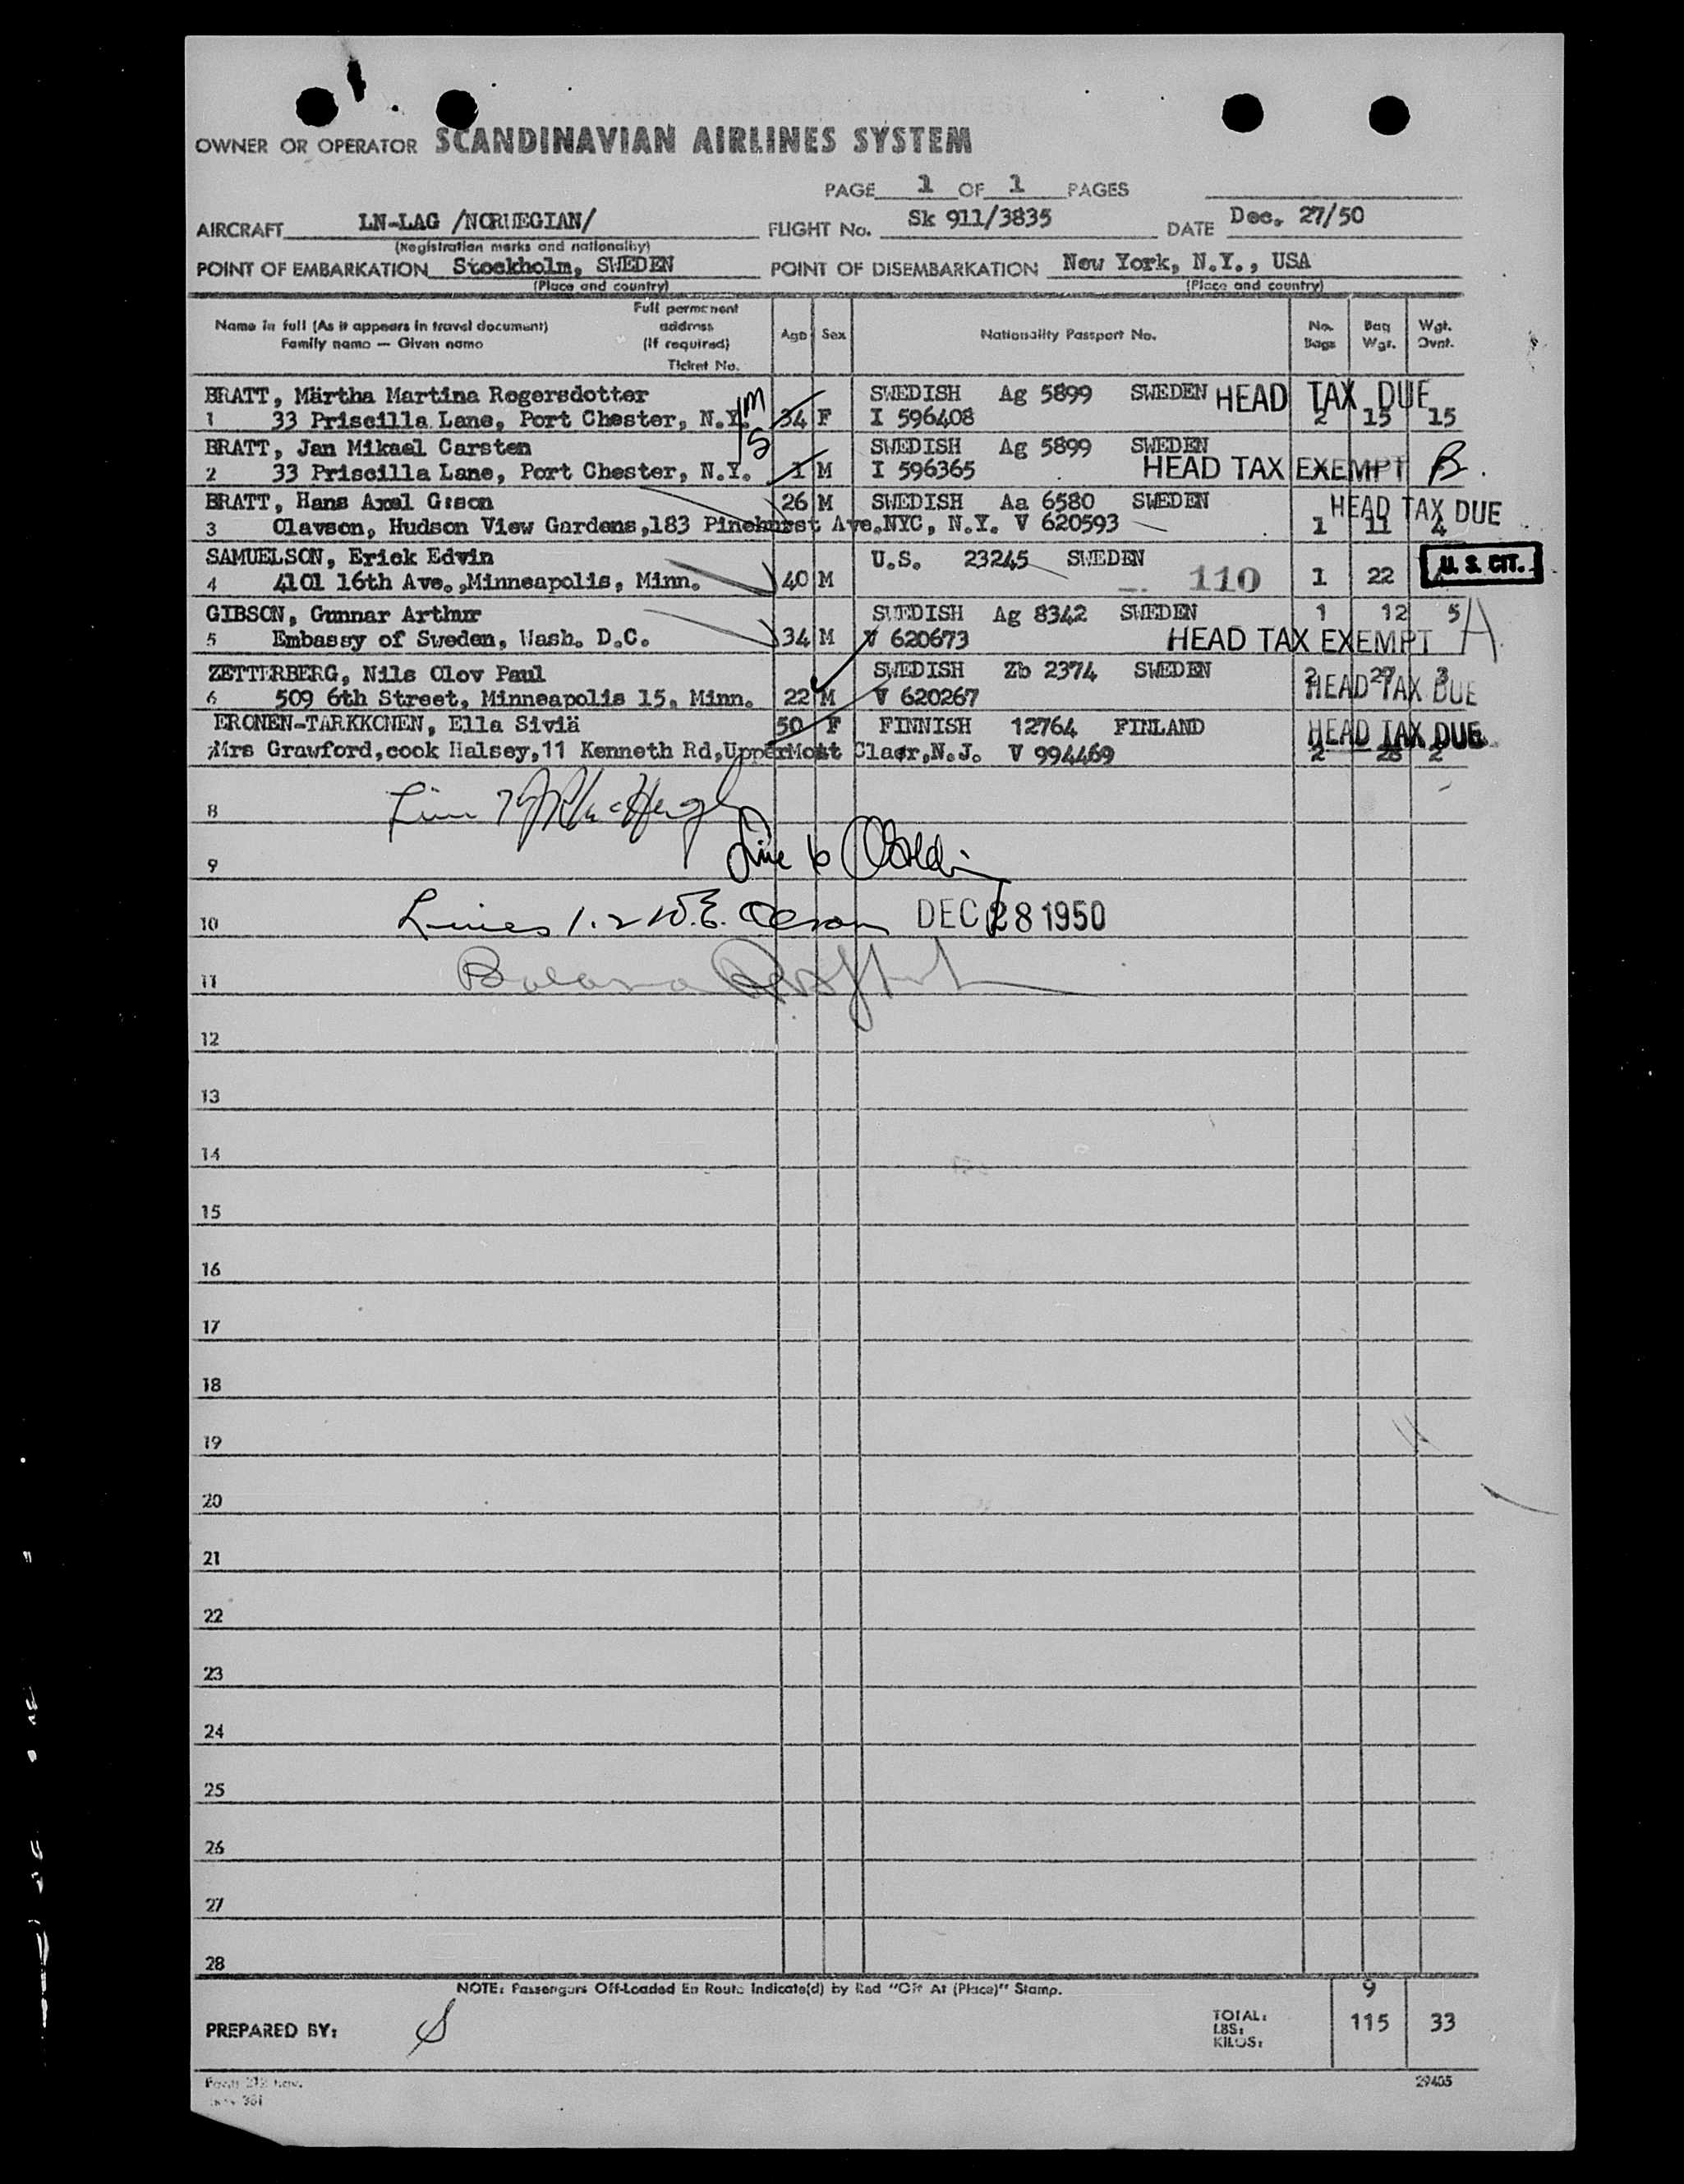 OWNER OR OPERATOR SCANDINAVIAN AIRLINES SYSTEM
PAGE 1 OF 1 PAGES
AIRCRAFT LN-LAG /NORWEGIAN/ FLIGHT No. Sk 911/3835 DATE Dec. 27/50
(Registration marks and nationality)
POINT OF EMBARKATION Stockholm, SWEDEN POINT OF DISEMBARKATION New York, N.Y., USA
(Place and country) (Place and country)
Name in full (As it appears in travel document) Family name — Given name Full permanent address (If required) Ticket No. Age Sex Nationality Passport No. No. Bags Bag Wgt. Wgt. Ovnt.
BRATT, Märtha Martina Rogersdotter SWEDISH Ag 5899 SWEDEN HEAD TAX DUE
1 33 Priscilla Lane, Port Chester, N.Y. 34 F I 596408 2 15 15
BRATT, Jan Mikael Carsten SWEDISH Ag 5899 SWEDEN
2 33 Priscilla Lane, Port Chester, N.Y. 1 M I 596365 HEAD TAX EXEMPT B.
BRATT, Hans Axel Gison 26 M SWEDISH Aa 6580 SWEDEN HEAD TAX DUE
3 Olavson, Hudson View Gardens,183 Pinehurst Ave.NYC, N.Y. V 620593 1 11 4
SAMUELSON, Erick Edvin U.S. 23245 SWEDEN U. S. CIT.
4 4101 16th Ave.,Minneapolis, Minn. 40 M 110 1 22
GIBSON, Gunnar Arthur SWEDISH Ag 8342 SWEDEN 1 12 5 A
5 Embassy of Sweden, Wash. D.C. 34 M V 620673 HEAD TAX EXEMPT
ZETTERBERG, Nils Olov Paul SWEDISH Zb 2374 SWEDEN 2 27 3
6 509 6th Street, Minneapolis 15, Minn. 22 M V 620267 HEAD TAX DUE
ERONEN-TARKKONEN, Ella Siviä 50 F FINNISH 12764 FINLAND HEAD TAX DUE
Mrs Grawford,cook Halsey,11 Kenneth Rd,UpperMont Claer,N.J. V 994469 2 28 2
8 Line 7
9 Line 6
10 Lines 1.2 W.E. Olson DEC 28 1950
11
12
13
14
15
16
17
18
19
20
21
22
23
24
25
26
27
28
NOTE: Passengers Off-Loaded En Route Indicate(d) by Red "Off At (Place)" Stamp. 9
PREPARED BY: TOTAL: LBS: KILOS: 115 33
29405